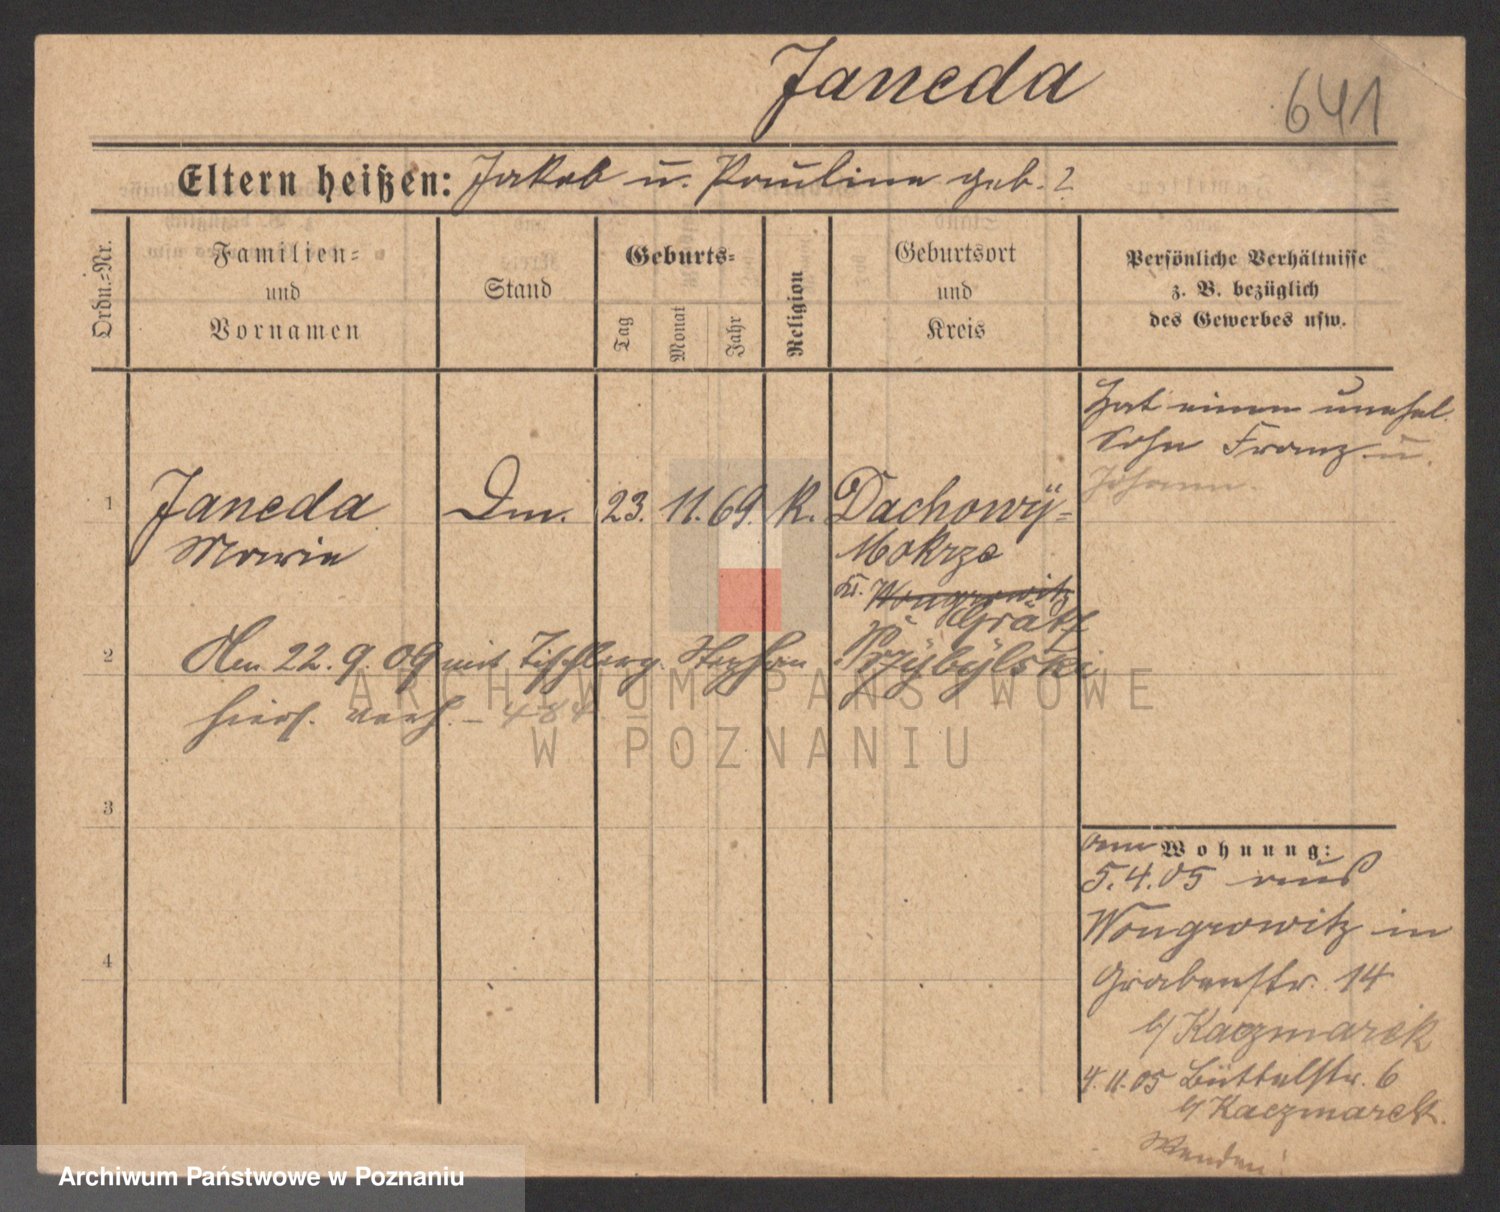 Janeda
641
Eltern heißen: Jakob u. Pauline geb. ?
Ordn.-Nr.
Familien-
und
Vornamen
Stand
Geburts-
Tag
Monat
Jahr
Religion
Geburtsort
und
Kreis
Persönliche Verhältnisse
z. B. bezüglich
des Gewerbes usw.
Hat einen unehel.
Sohn Franz u.
Johann.
1
Janeda
Marie
23. 11. 69. K.
Dachowÿ-
Mokrze
Kr. Wongrowitz
Grätz
2
Am 22. 9. 09 mit Tischlerg. Stephan Przÿbÿlski
hiers. verh. – 484
3
4
Wohnung:
am
5.4.05 aus
Wongrowitz in
Grabenstr. 14
b/ Kaczmarek
4.11.05 Büttelstr. 6
b/ Kaczmarek.
Wenden!
ARCHIWUM PAŃSTWOWE
W POZNANIU
Archiwum Państwowe w Poznaniu